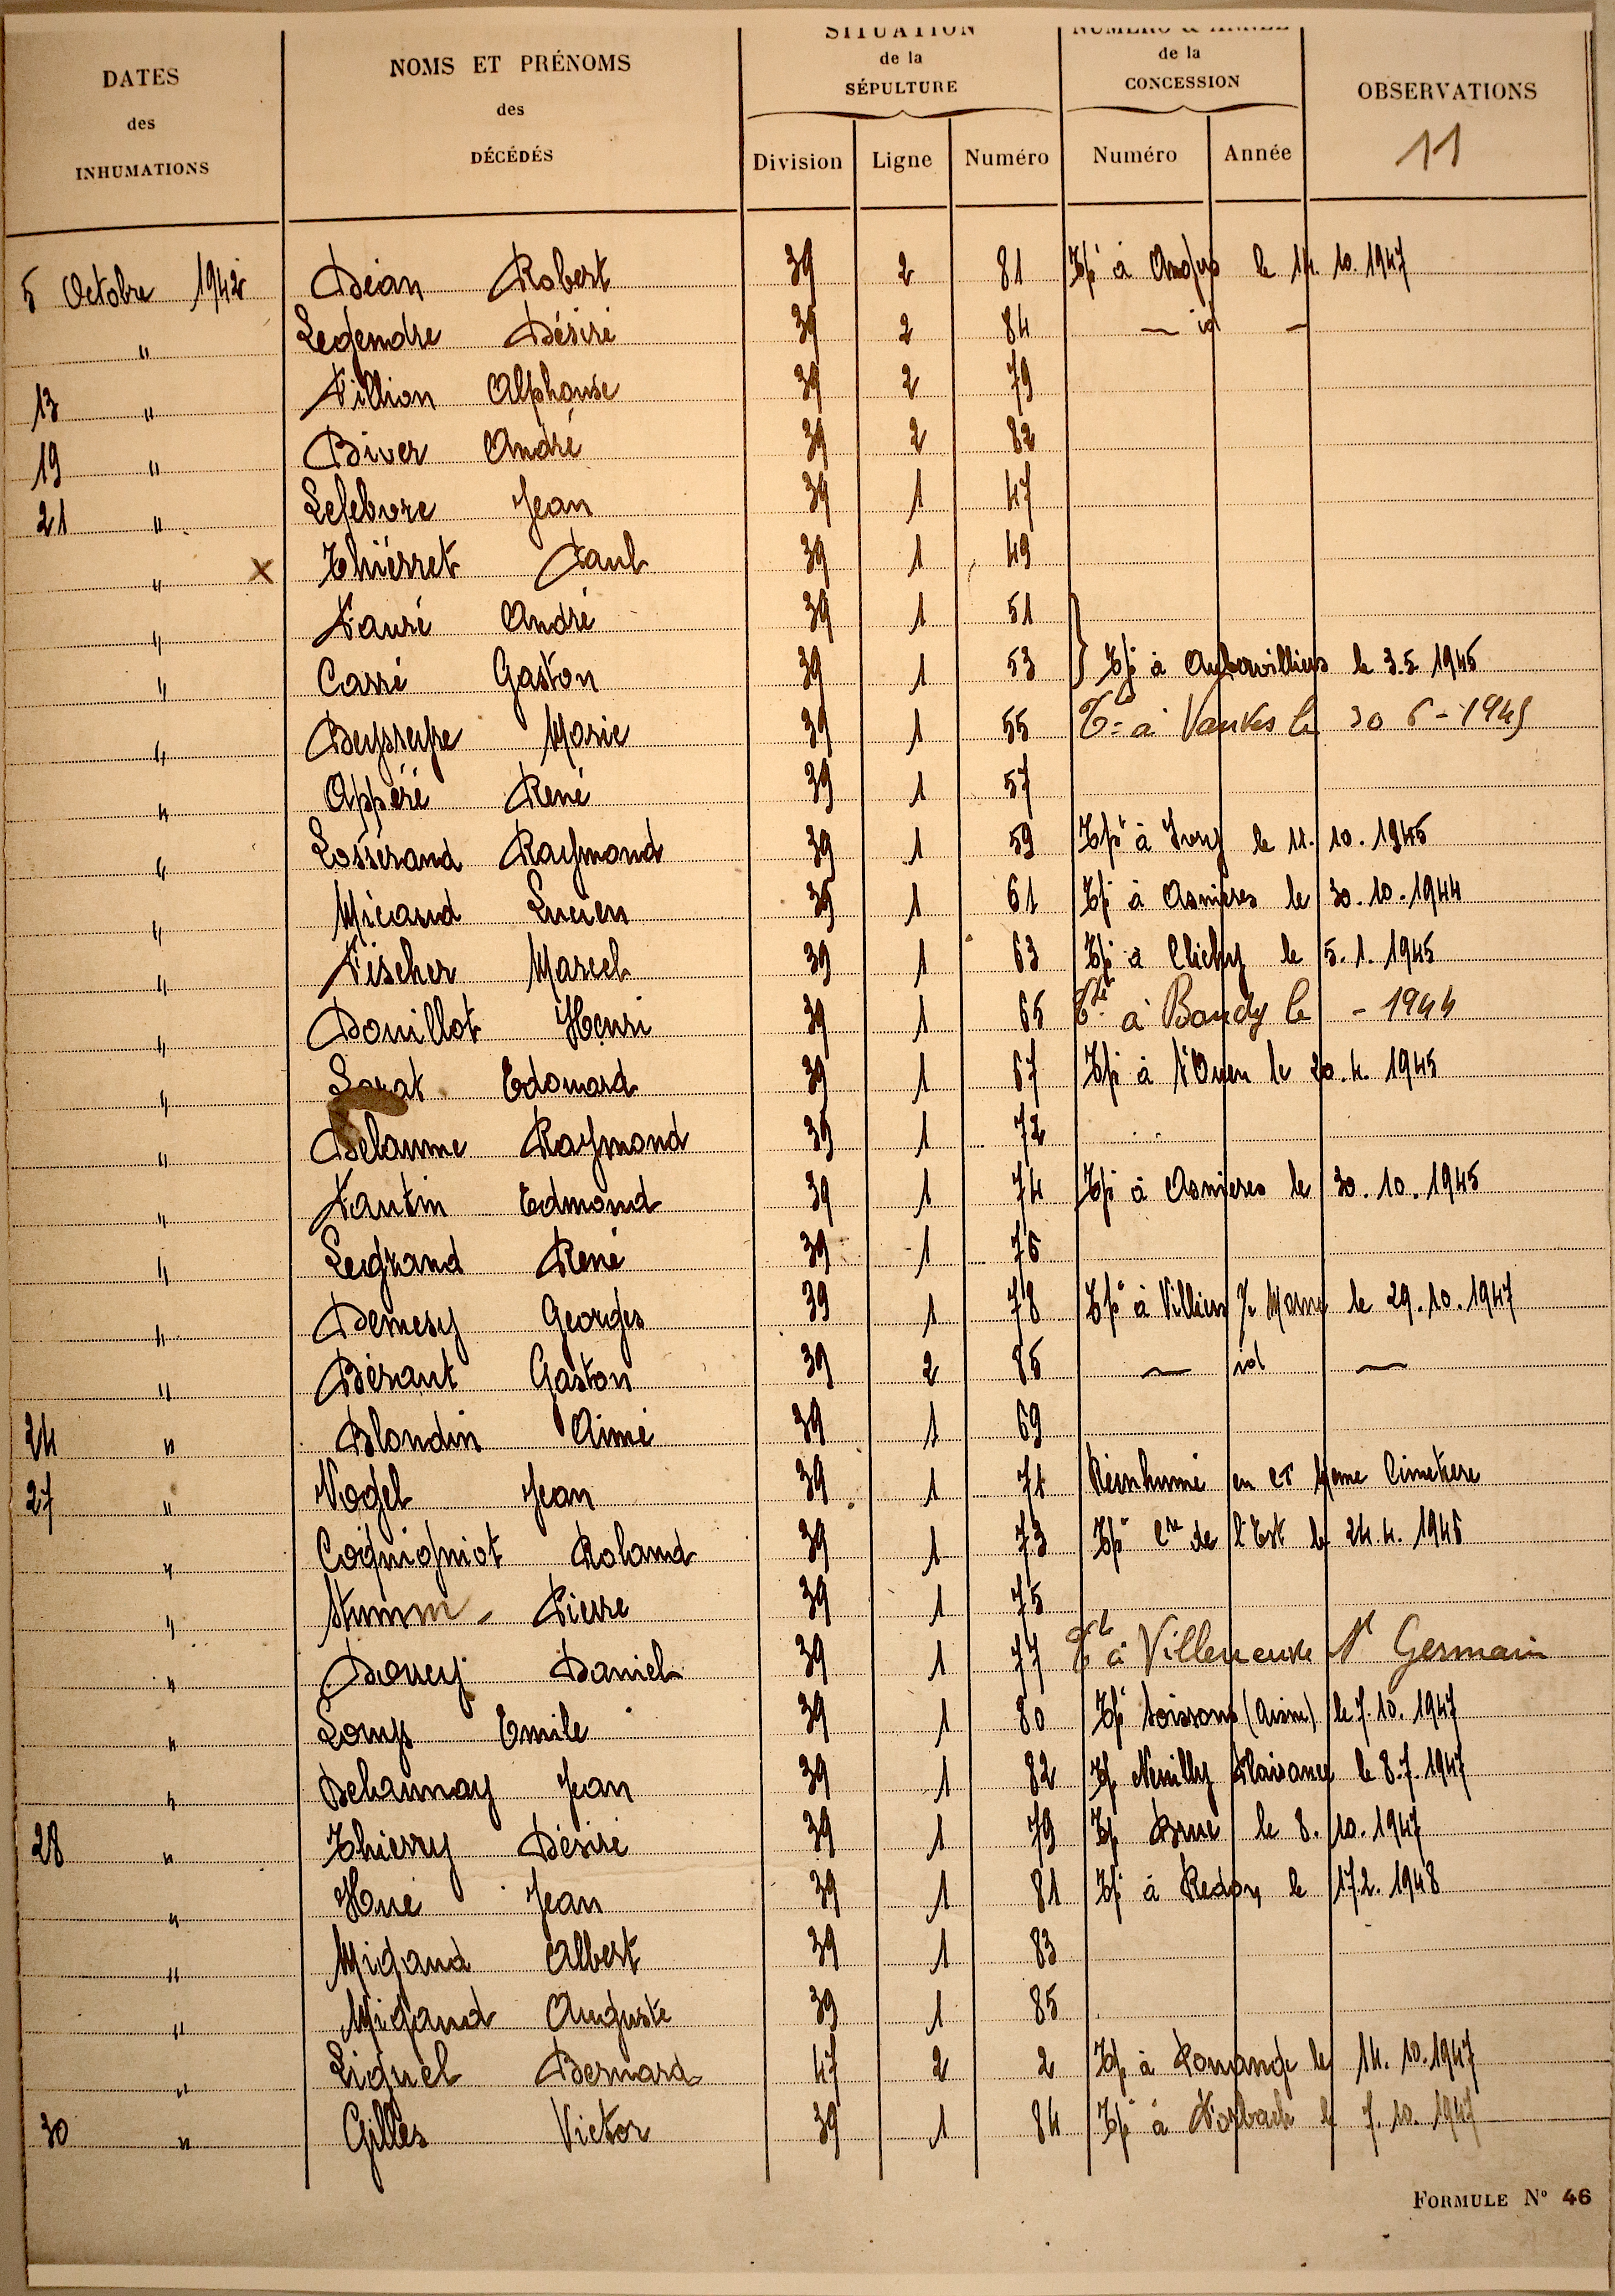 DATES
des
INHUMATIONS
NOMS ET PRÉNOMS
des
DÉCÉDÉS
SITUATION
de la
SÉPULTURE
Division Ligne Numéro
NUMÉRO & ANNÉE
de la
CONCESSION
Numéro Année
OBSERVATIONS
11
5 Octobre 1942 Déan Robert 39 2 81 Tpé à Angers le 14. 10. 1947
" Legendre Désiré 39 2 84 — id —
13 " Fillion Alphonse 39 2 79
19 " Biver André 39 2 82
21 " Lefebvre Jean 39 1 47
" X Thiérret Paul 39 1 49
" Fauré André 39 1 51
" Carré Gaston 39 1 53 } Tpé à Aubervilliers le 3.5 1945
" Deysseyre Marie 39 1 55 à Vanves le 30 6 - 1945
" Appéré René 39 1 57
" Losserand Raymond 39 1 59 Tpé à Ivry le 11. 10. 1945
" Micaud Lucien 39 1 61 Tpé à Asnieres le 30. 10. 1944
" Fischer Marcel 39 1 63 Tpé à Clichy le 5. 1. 1945
" Douillot Henri 39 1 65 à Bondy le - 1944
" Edouard 39 1 67 Tpé à St Ouen le 20. 4. 1945
" Delaume Raymond 39 1 72
" Fantin Edmond 39 1 74 Tpé à Asnieres le 30. 10. 1945
" Legrand René 39 1 76
" Demesy Georges 39 1 78 Tpé à Villiers s/ Marne le 29. 10. 1947
" Dérant Gaston 39 2 85 — id —
24 " Blondin Aimé 39 1 69
27 " Vogel Jean 39 1 71 Réinhumé en ce même Cimetiere
" Coquigniot Roland 39 1 73 Tpé Cre de l'Est le 24. 4. 1945
" Stumm Pierre 39 1 75
" Daniel 39 1 77 à Villeneuve St Germain
" Loups Emile 39 1 80 Tpé Soissons (Aisne) le 7. 10. 1947
" Delaunay Jean 39 1 82 Tpé Neuilly Plaisance le 8. 7. 1947
28 " Thierry Désiré 39 1 79 Tpé le 8. 10. 1947
" Hué Jean 39 1 81 Tpé à Redon le 17.2. 1948
" Migaud Albert 39 1 83
" Migaud Auguste 39 1 85
" Liquel Bernard 47 2 2 Tpé à le 14. 10. 1947
30 " Gilles Victor 39 1 84 Tpé à Forbach le 7. 10. 1947
FORMULE N° 46